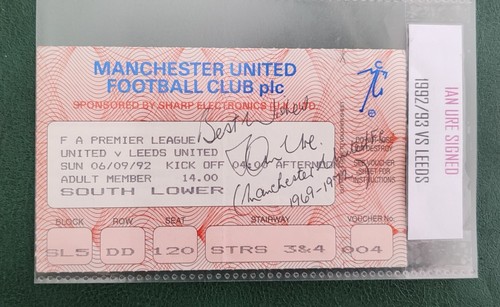 MANCHESTER UNITED
FOOTBALL CLUB plc
SPONSORED BY SHARP ELECTRONICS LTD.
Best Wishes
F A PREMIER LEAGUE
UNITED v LEEDS UNITED
SUN 06/09/92 KICK OFF 04:00 AFTERNOON
ADULT MEMBER 14.00
SOUTH LOWER
Ure.
(Manchester United F.C.
1969-1972
DESTROY
SEE VOUCHER
SHEET FOR
INSTRUCTIONS
BLOCK ROW SEAT STAIRWAY VOUCHER No.
SL5 DD 120 STRS 3&4 004
IAN URE SIGNED
1992/93 VS LEEDS